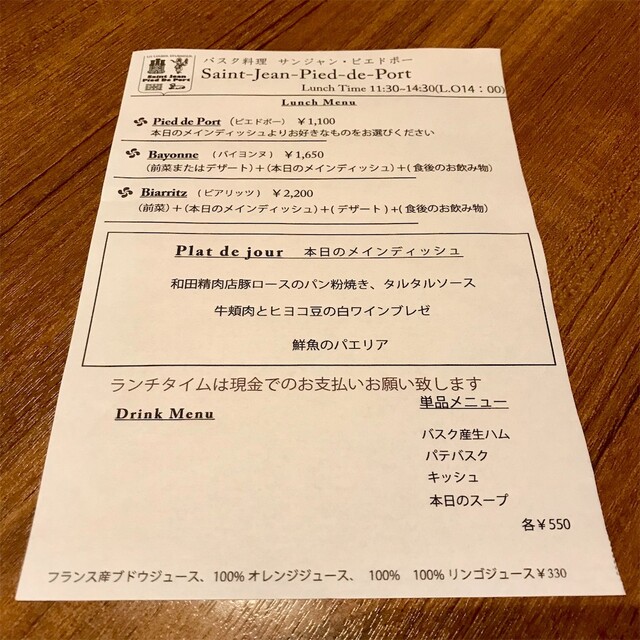 Saint Jean
Pied De Port
バスク料理 サンジャン・ピエドポー
Saint-Jean-Pied-de-Port
Lunch Time 11:30-14:30(L.O14：00)
Lunch Menu
Pied de Port (ピエドポー) ￥1,100
本日のメインディッシュよりお好きなものをお選びください
Bayonne (バイヨンヌ) ￥1,650
(前菜またはデザート)＋(本日のメインディッシュ)＋( 食後のお飲み物)
Biarritz (ビアリッツ) ￥2,200
(前菜)＋(本日のメインディッシュ)＋( デザート)＋( 食後のお飲み物)
Plat de jour 本日のメインディッシュ
和田精肉店豚ロースのパン粉焼き、タルタルソース
牛頬肉とヒヨコ豆の白ワインブレゼ
鮮魚のパエリア
ランチタイムは現金でのお支払いお願い致します
Drink Menu
単品メニュー
バスク産生ハム
パテバスク
キッシュ
本日のスープ
各￥550
フランス産ブドウジュース、100% オレンジジュース、 100% 100% リンゴジュース￥330